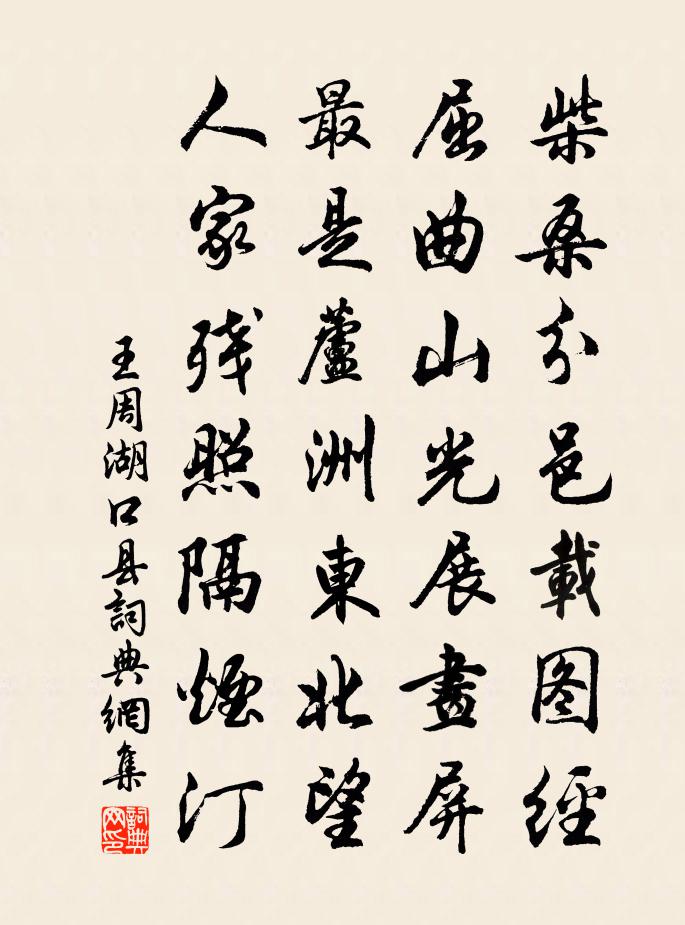 柴桑分邑載图經
屈曲山光展畫屏
最是蘆洲東北望
人家残照隔煙汀
王周湖口县詞典網集
詞典网印